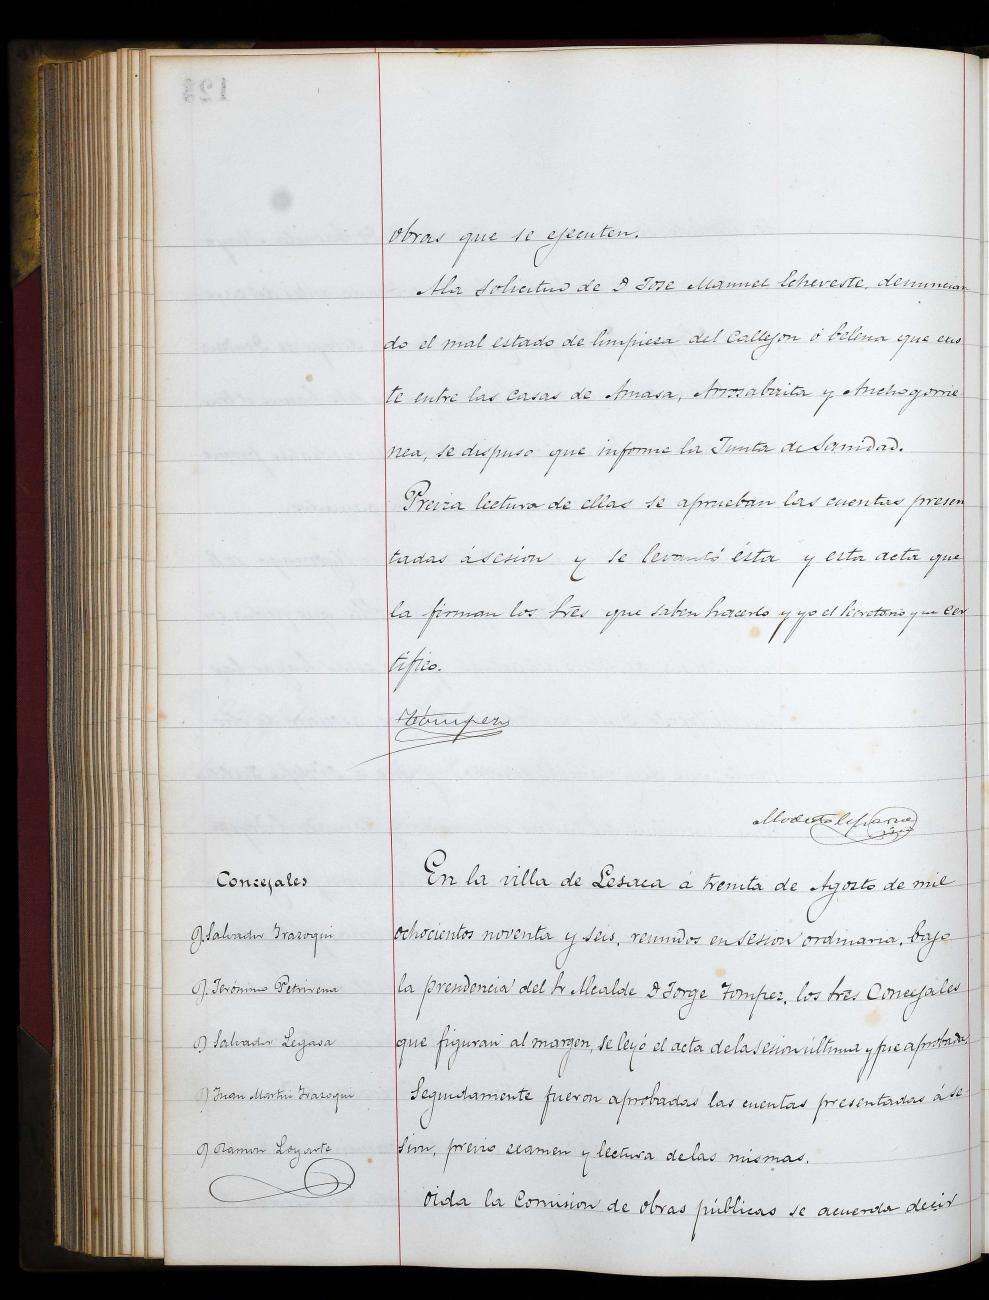 obras que se ejecuten.
Ala solicitud de D José Manuel Echeveste, denuncian
do el mal estado de limpieza del callejon ó belena que exis
te entre las casas de Amasa, Arozabaita y Anchogorrie
nea, se dispuso que informe la Junta de Sanidad.
Previa lectura de ellas se aprueban las cuentas presen
tadas á sesión y se levantó ésta y esta acta que
la firman los tres que saben hacerlo y yo el Secretario que cer
tifico.
Tómpez
Modesto
Concejales
En la villa de Lesaca á treinta de Agosto de mil
D. Salvador Irazoqui
ochocientos noventa y seis, reunidos en sesion ordinaria, bajo
D. Jerónimo Petrirena
la presidencia del Sr Alcalde D Jorge Tompez, los tres Concejales
D Salvador Legasa
que figuran al margen, se leyó el acta de la sesion última y fue aprobada.
D Juan Martin Irazoqui
Seguidamente fueron aprobadas las cuentas presentadas á se-
D Ramon Loyarte
sion, previo examen y lectura de las mismas.
Oida la Comision de obras públicas se acuerda decir